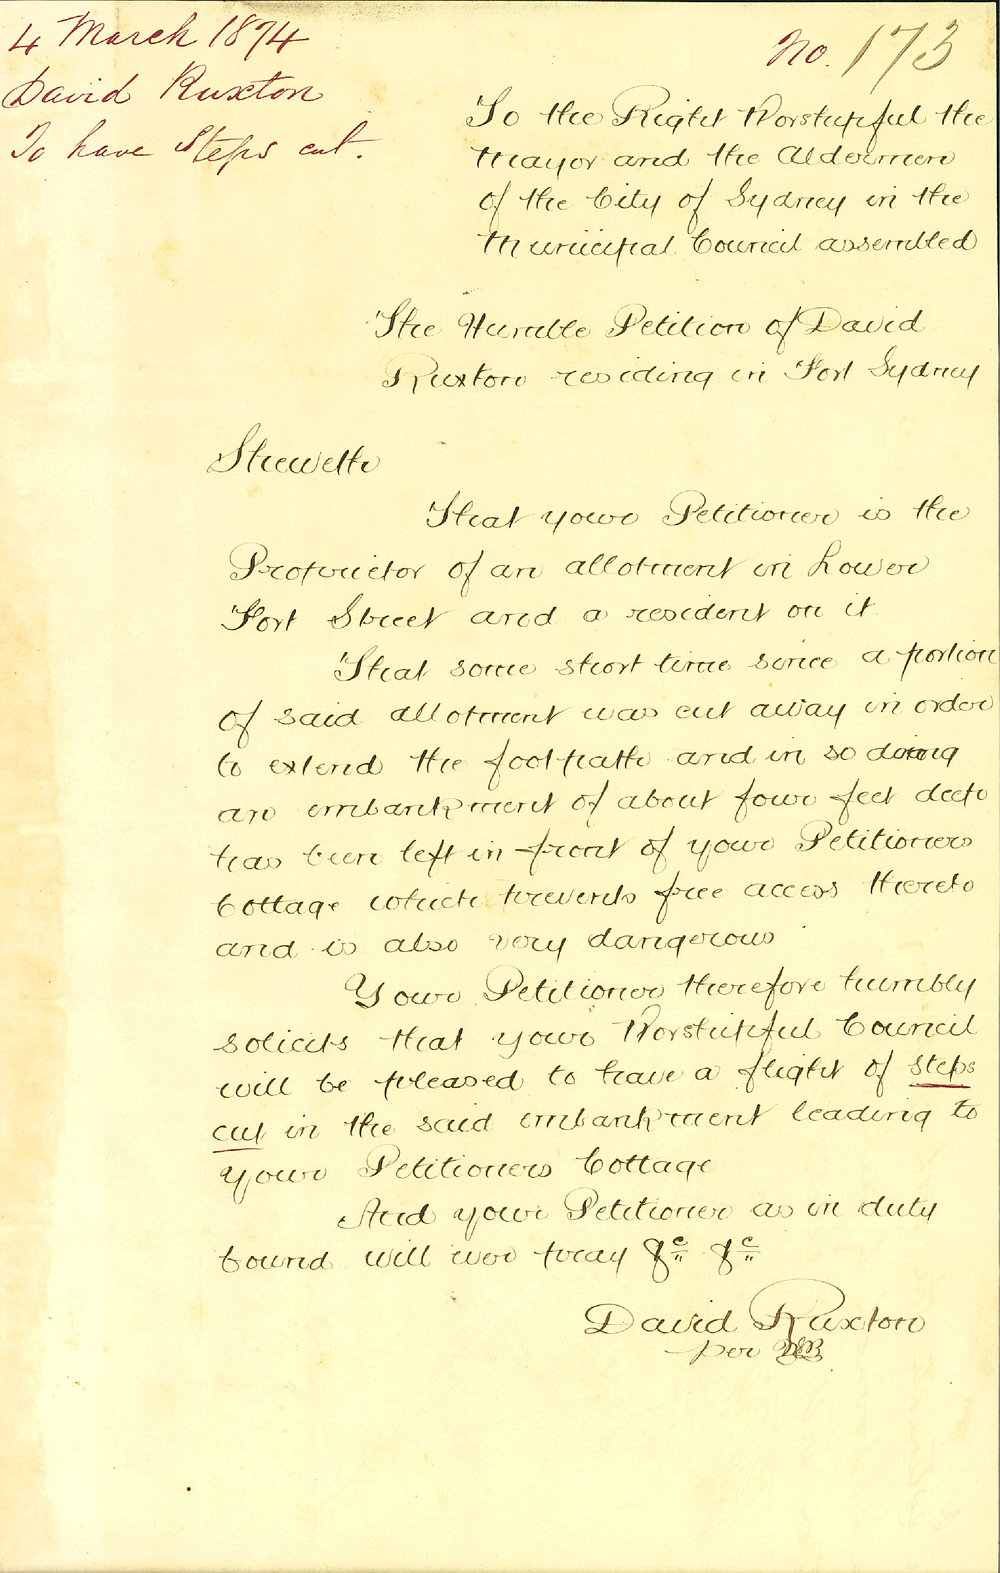 4 March 1874
David Ruxton
To have Steps cut.
No. 173
To the Right Worshipful the
Mayor and the Aldermen
of the City of Sydney in the
Municipal Council assembled
The Humble Petition of David
Ruxton residing in Fort Sydney
Sheweth
That your Petitioner is the
Proprietor of an allotment in Lower
Fort Street and a resident on it
That some short time since a portion
of said allotment was cut away in order
to extend the footpath and in so doing
an embankment of about four feet deep
has been left in front of your Petitioners
Cottage which prevents free access thereto
and is also very dangerous
Your Petitioner therefore humbly
solicits that your Worshipful Council
will be pleased to have a flight of steps
cut in the said embankment leading to
your Petitioners Cottage
And your Petitioner as in duty
bound will ever pray &c &c
David Ruxton
per